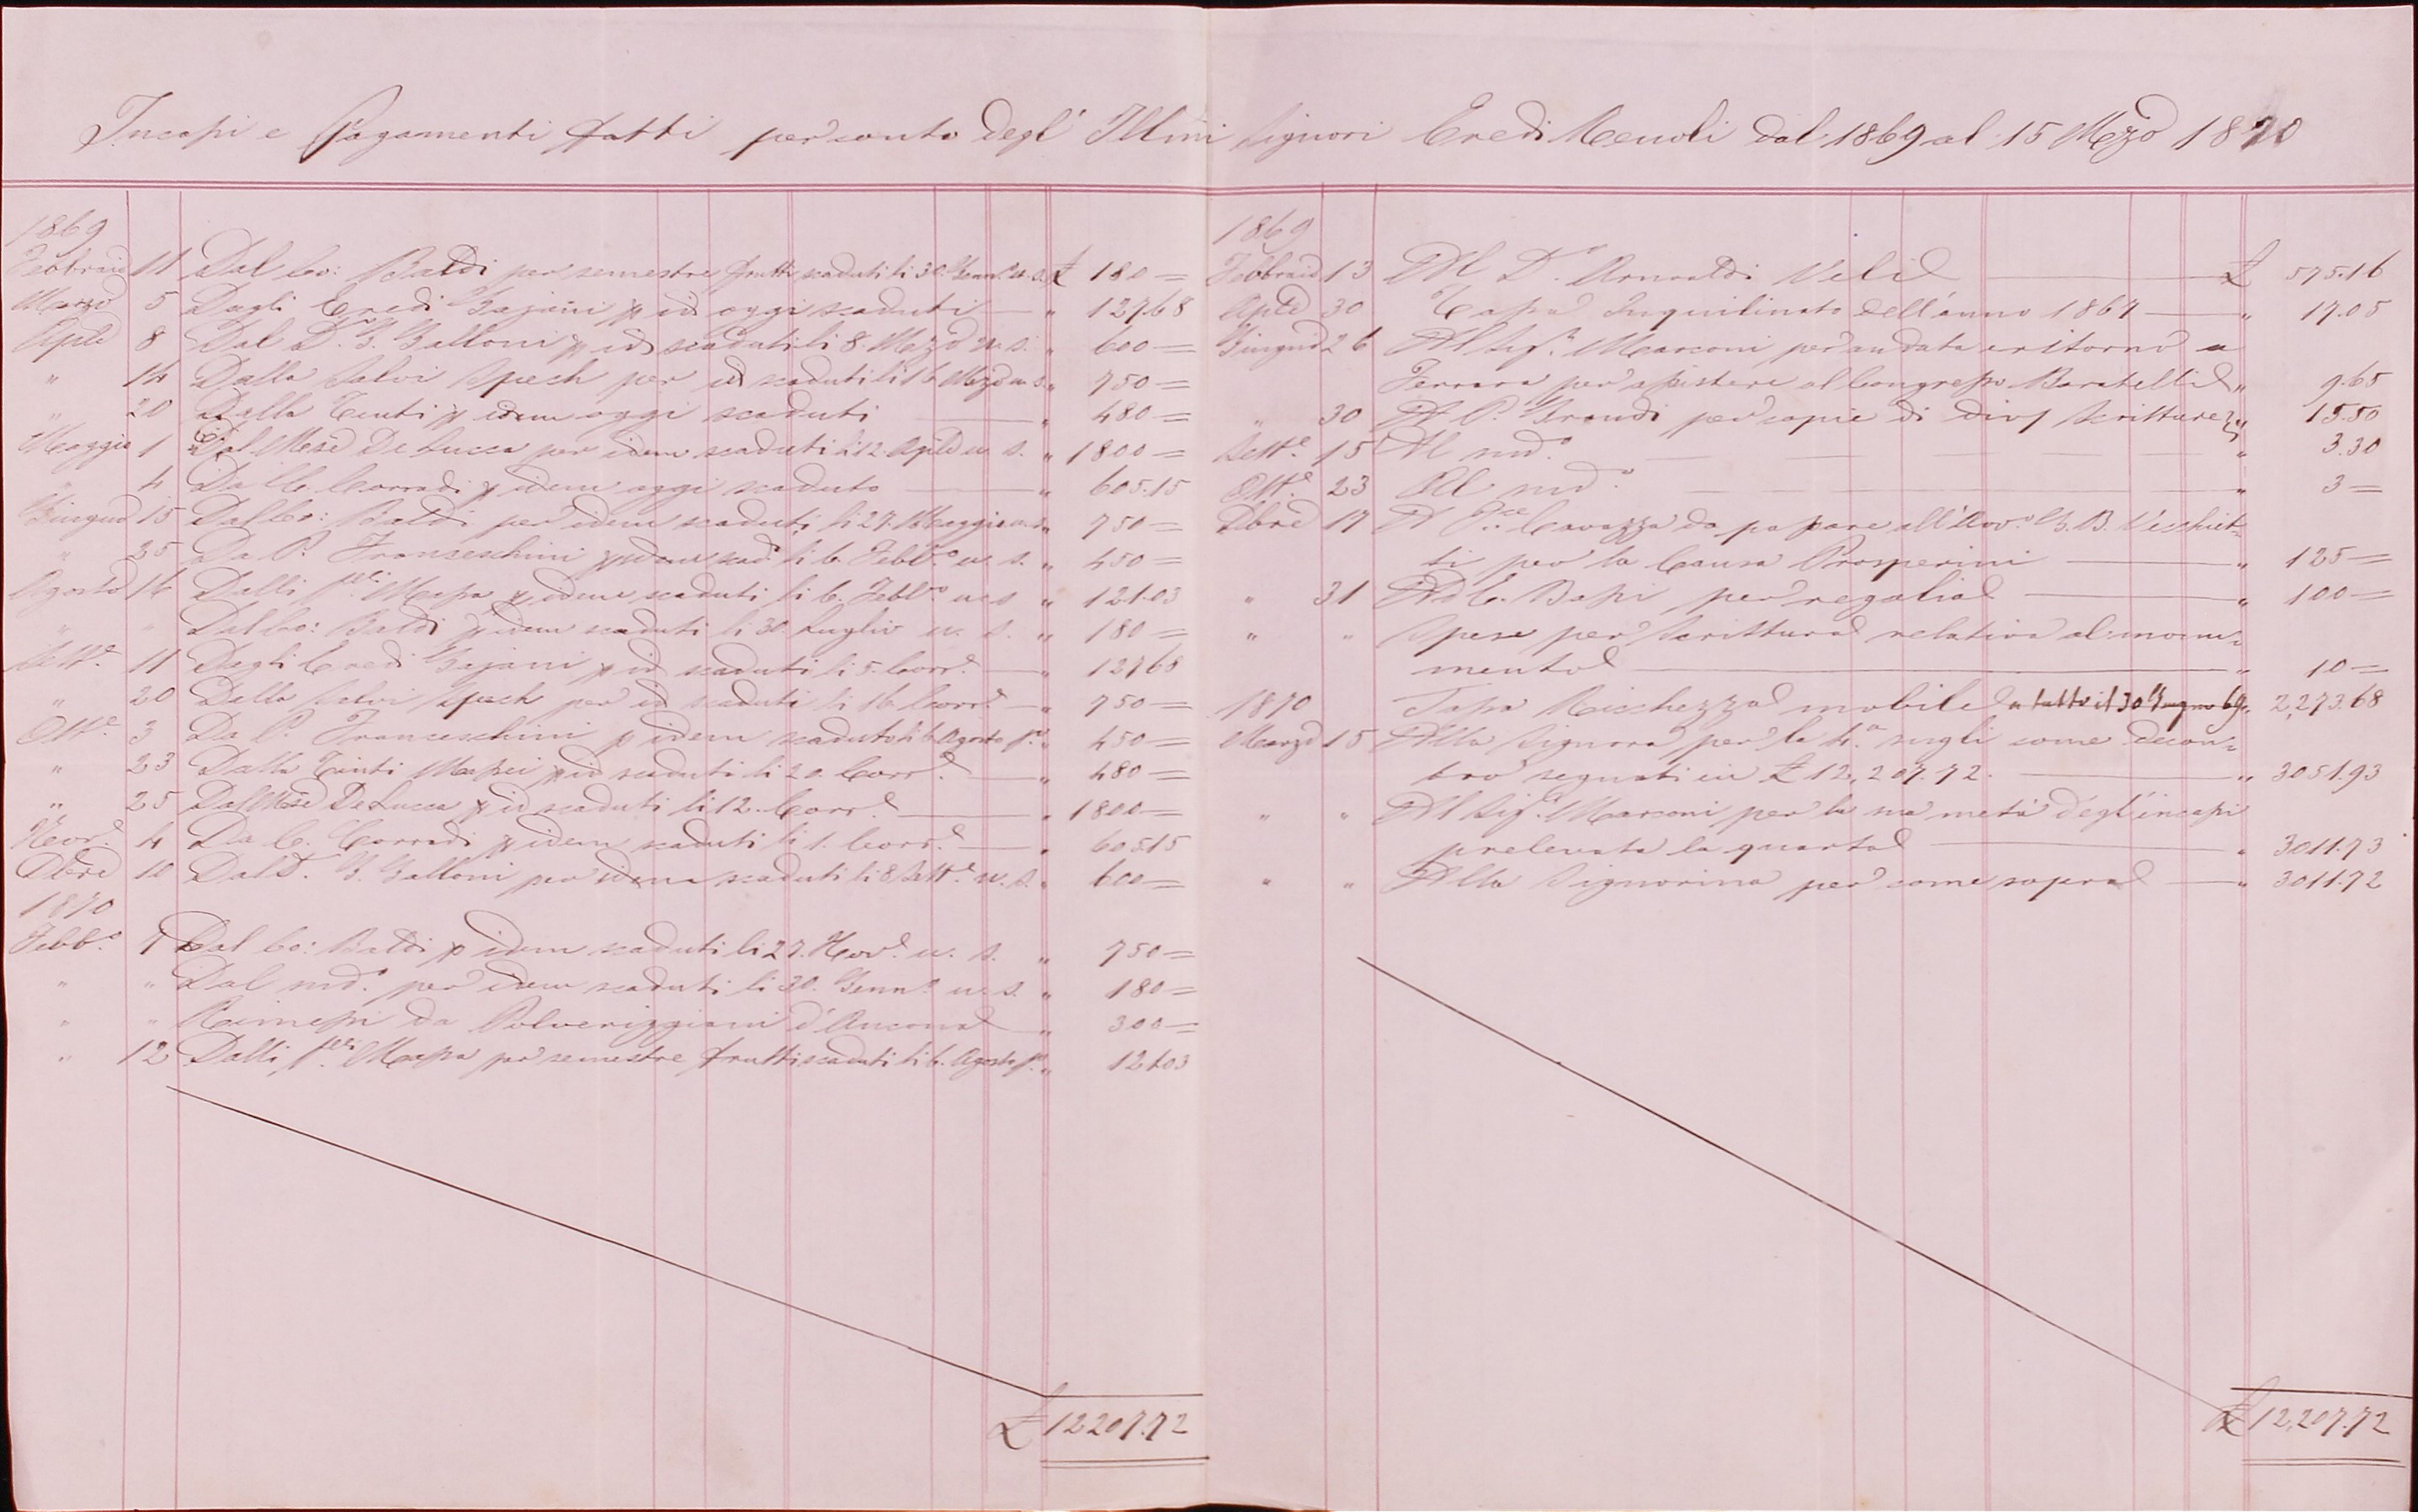 Incassi e Pagamenti fatti per conto degl' Illmi Signori Eredi Menoli dal 1869 al 15 Mzo 1870
1869
Febbraio 11 Dal Co: Baldi per semestre frutti scaduti li 30. Genn.o u. s. £ 180 =
Marzo 5 Dagli Eredi Gajani p id oggi scaduti — " 127.68
Aple 8 Dal D. G. Galloni p id scaduti li 8. Mzo u. s. " 600 =
" 14 Dalla Salvi Spech per id scaduti li 16 Mzo u. s. " 750 =
" 20 Dalla Tinti p idem oggi scaduti — " 480 =
Maggio 1 Dal Mse De Lucca per idem scaduti li 12 Aple u. s. " 1800 =
" 4 Da C. Corradi p idem oggi scaduto — " 605.15
Giugno 15 Dal Co: Baldi per idem scaduti li 27. Maggio u. s. " 750 =
" 25 Da P. Franceschini p idem scad. li 6. Febb.o u. s. " 450 =
Agosto 16 Dalli f.lli Massa p idem scaduti li 6. Febb.o u. s " 121.03
" " Dal Co: Baldi p idem scaduti li 30. Luglio u. s. " 180 =
Sett.e 11 Dagli Eredi Gajani p id scaduti li 5. Corr.e — " 127.68
" 20 Dalla Salvi Spech per id scaduti li 16 Corr.e — " 750 =
Ott.e 3 Da P. Franceschini p idem scaduto li 6 Agosto p.o " 450 =
" 23 Dalla Tinti Massei p id scaduti li 20. Corr.e — " 480 =
" 25 Dal Mse De Lucca p id scaduti li 12. Corr.e — " 1800 =
Nov.e 4 Da C. Corradi p idem scaduti li 1. Corr.e — " 605.15
Dbre 10 Dal D. G. Galloni per idem scaduti li 8 Sett.e u. s. " 600 =
1870
Febb.o 1 Dal Co: Baldi p idem scaduti li 27. Nov.e u. s. " 750 =
" " Dal md.o per idem scaduti li 30. Genn.o u. s. " 180 =
" " Rimessi da Polveriggiani d'Ancona — " 300 =
" 12 Dalli f.lli Massa per semestre frutti scaduti li 6. Agosto p.o " 121.03
£ 12207.72
1869
Febbraio 13 Al D.r Arnoaldi Veli — £ 575.16
Aple 30 Tassa Inquilinato dell'anno 1867 — " 17.05
Giugno 26 Al Sig.r Marconi per andata e ritorno a
Ferrara per assistere al Congresso Baratelli " 9.65
" 30 A P. Grandi per copie di div.e Scritture " 15.50
Sett.e 15 Al md.o — " 3.30
Ott.e 23 Al md.o — " 3 =
Dbre 17 A Cavazza da passare all'Avv.o G. B. Vecchiet=
ti per la Causa Prosperini — " 125 =
" 31 Ad E. Bassi per regalia — " 100 =
" " Spese per Scrittura relativa al monu=
mento — " 10 =
1870 Tassa Ricchezza mobile a tutto il 30 Giugno 69 " 2,273.68
Marzo 15 Alla Signora per la 4.a sugli come decon=
tro segnati in £ 12,207.72. — " 3051.93
" " Al Sig.r Marconi per la sua metà degl'incassi
prelevata la quarta — " 3011.73
" " Alla Signorina per come sopra — " 3011.72
£ 12,207.72